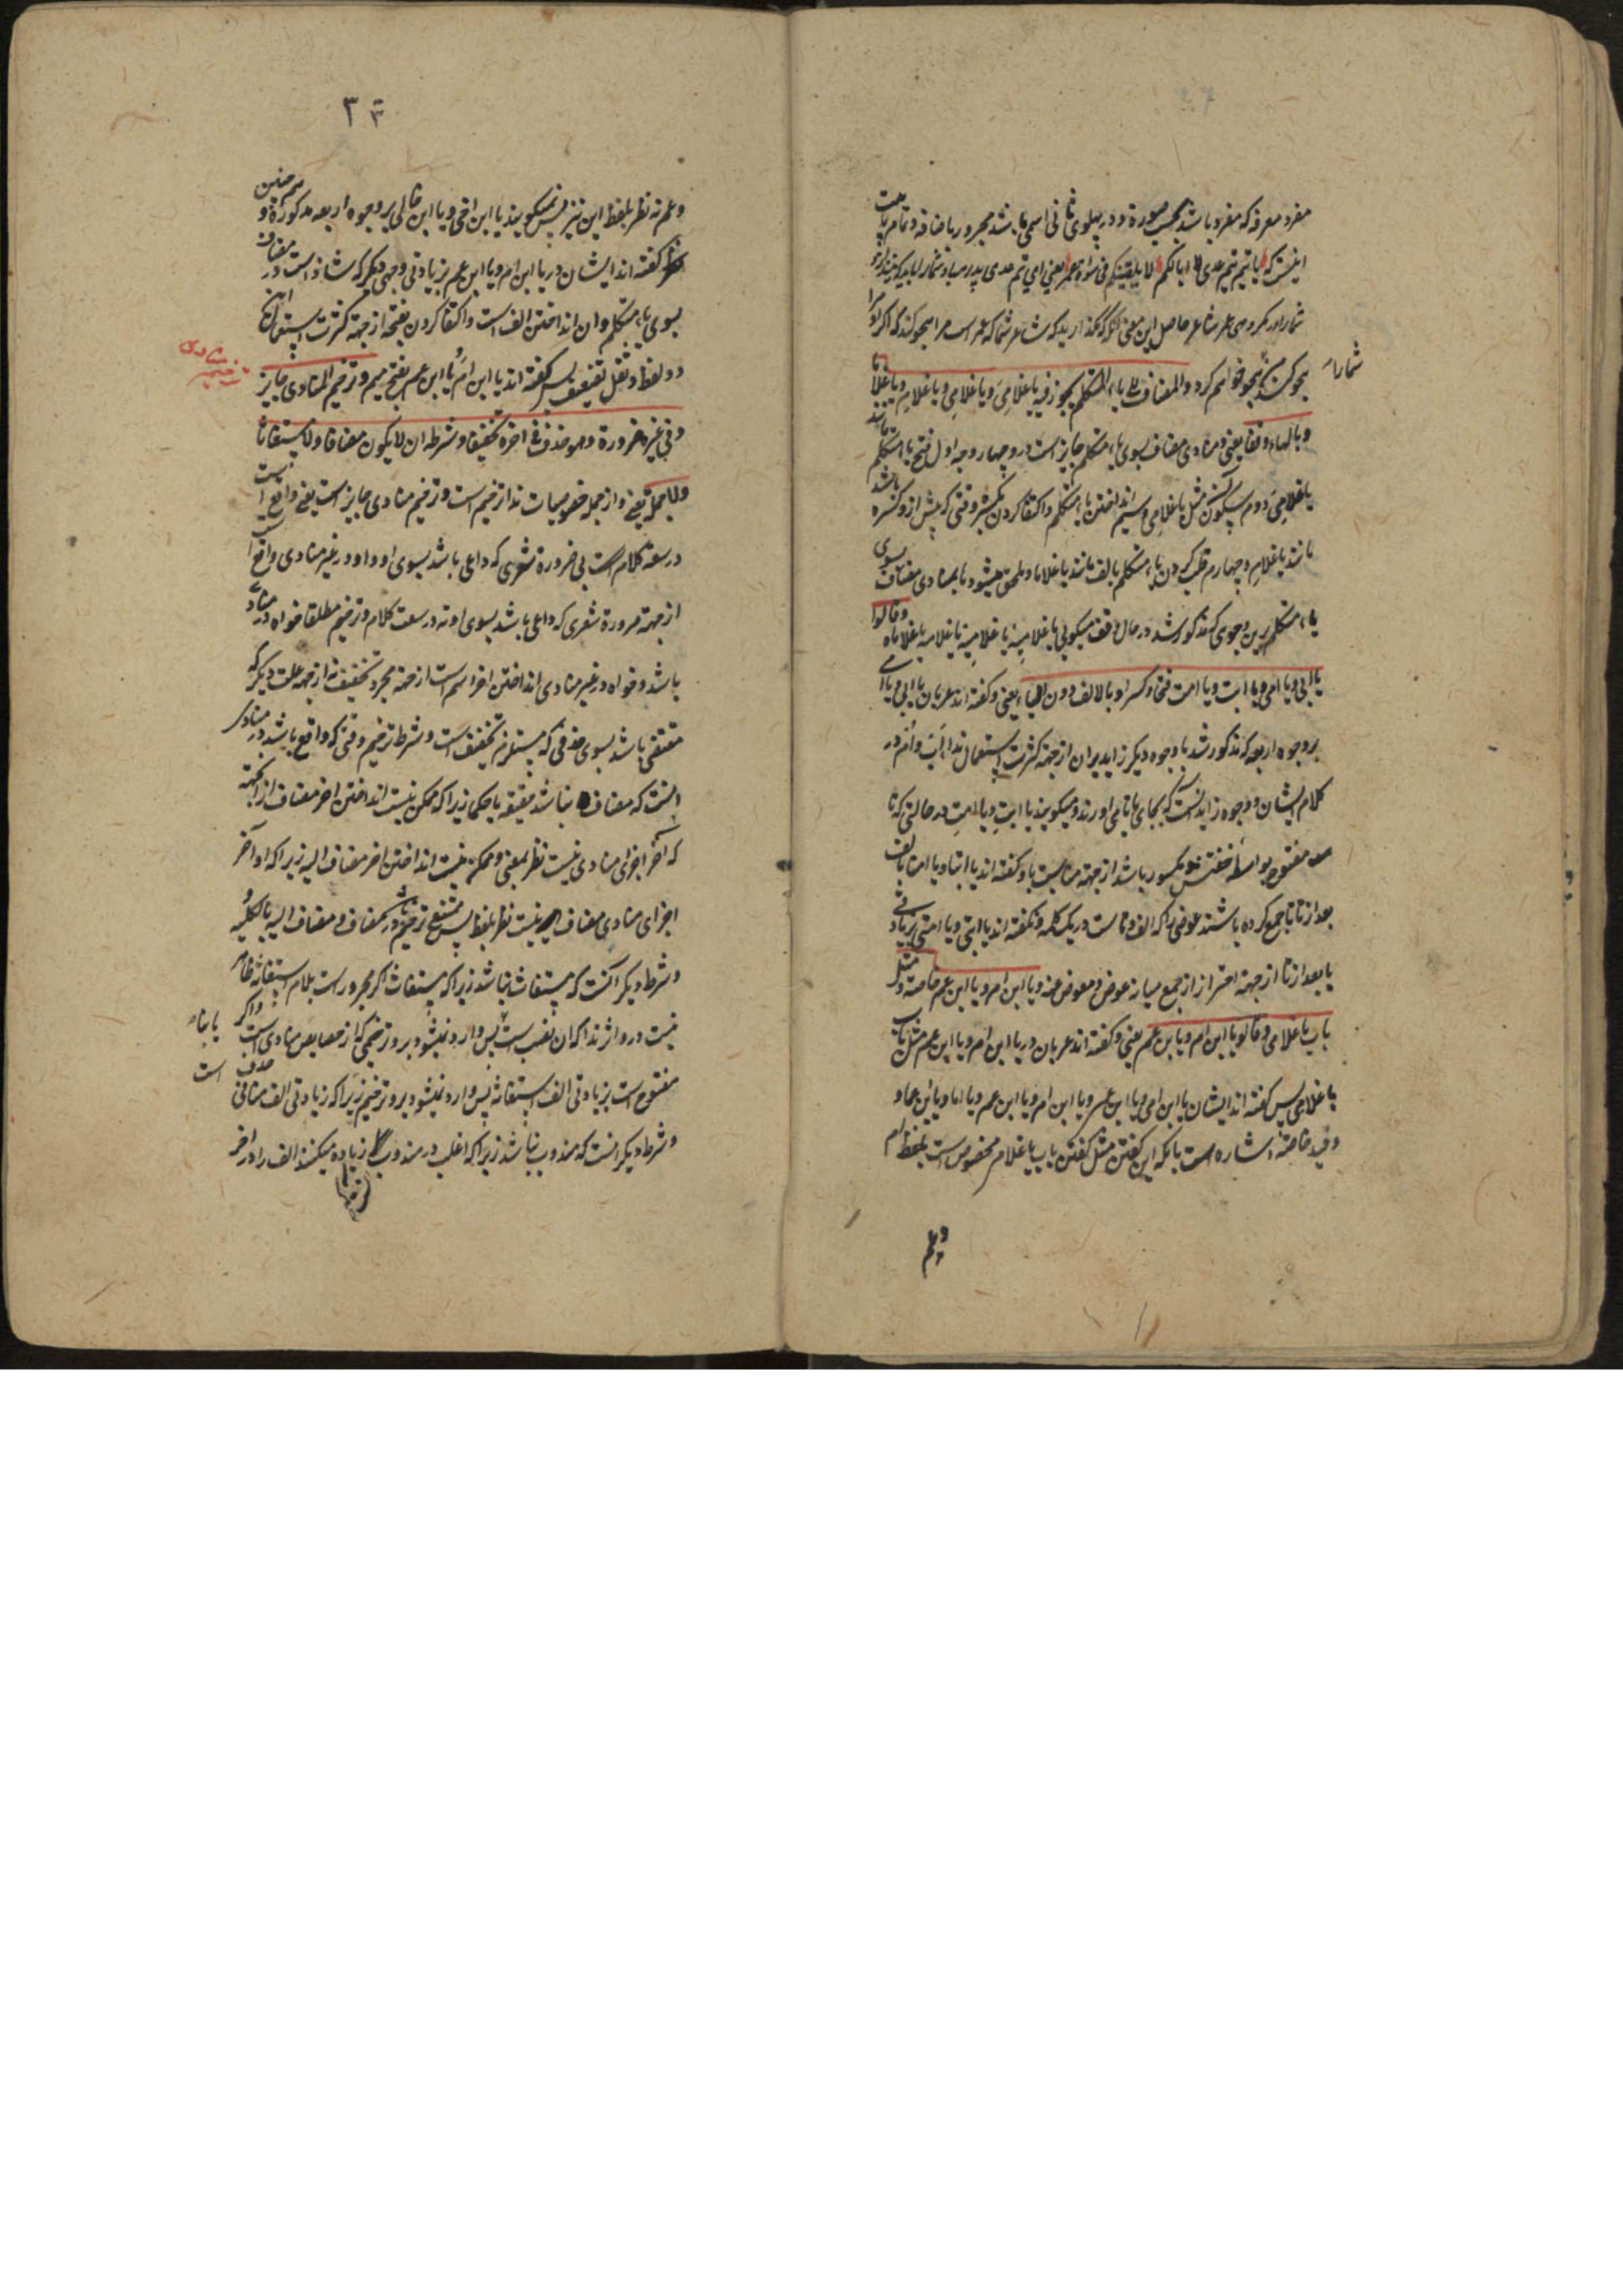 مفرد معرفه که مفرد باشد بحسب صورة و در پهلوی ثانی اسمی باشد مجرور باضافه و تمام بیت
اینست که یا تیم تیم عدی لا ابا لکم لا یلقینکم فی سوأة عمر یعنی ای تیم عدی پدر مباد شمارا باید که نیندازد
شمارا در مکروهی عمر شاعر حاصل این معنی آنکه مگذارید که شاعر شما که عمر است مرا هجو کند که اگر او مرا
هجو کند من هجو خواهم کرد والمضاف الی یاء المتکلم یجوز فیه یا غلامی و یا غلامی و یا غلام و یا غلاما
شمارا
و بالهاء وقفا یعنی و منادی مضاف بسوی یاء متکلم جایز است درو چهار وجه اول فتح یاء متکلم مانند
یا غلامی دوم سکون آن مثل یا غلامی سیم انداختن یاء متکلم و اکتفا کردن بکسره وقتی که پیش ازو کسره باشد
مانند یا غلام و چهارم قلب کردن یاء متکلم بالف مانند یا غلاما و ملحق میشود ها بمنادی مضاف بسوی
یاء متکلم برین وجوهی که مذکور شد در حال وقف میکویی یا غلامیه یا غلامیه یا غلامه یا غلاماه وقالوا
یا ابی و یا امی و یا ابت و یا امت فتحا و کسرا و بالالف دون الیاء یعنی و گفته اند عربان یا ابی و یا امی
بر وجوه اربعه که مذکور شد با وجوه دیگر زاید بر آن از جهة کثرت استعمال ندا اب و ام در
کلام ایشان و وجوه زاید آنست که بجای یا تا می اورند و میکویند یا ابت و یا امت در حالتی که تا
مفتوح بواسطه خفتش و مکسور باشد از جهة مناسبت یا و گفته اند یا ابتا و یا امتا بالف
بعد از تا تا جمع کرده باشند عوضی را که الف و تا ست در یک کلمه و نگفته اند یا ابتی و یا امتی بزیادتی
یا بعد از تا از جهة احتراز از جمع میانه عوض و معوض عنه و یا ابن ام و یا ابن عم خاصة مثل
باب یا غلامی وقالوا یا ابن ام و یا ابن عم یعنی و گفته اند عربان در یا ابن ام و یا ابن عم مثل باب
یا غلامی پس گفته اند ایشان یا ابن امی و یا ابن عمی و یا ابن ام و یا ابن عم و یا ابن اما و یا ابن عما و
و قید خاصة اشاره است بانکه این گفتن مثل گفتن باب یا غلامی مخصوص است بلفظ ام
وعم
٣٣
وعم نه نظر بلفظ ابن نیز پس نمیکویند یا ابن اخی و یا ابن خالی بر وجوه اربعه مذکوره و هم چنین
گفته اند ایشان در یا ابن ام و یا ابن عم بزیادتی وجهی دیگر که شاذ است در مضاف
بسوی یاء متکلم و ان انداختن الف است و اکتفا کردن بفتحه از جهة کثرت استعمال این
دو لفظ و ثقل تضعیف پس گفته اند یا ابن ام و یا ابن عم بفتح میم و ترخیم المنادی جایز
منادی
ترخیم
وفی غیره ضرورة وهو حذف فی اخره تخفیفا وشرطه ان لا یکون مضافا ولا مستغاثا
ولا جملة یعنی و از جمله خصوصیات ندا ترخیم است و ترخیم منادی جایز است یعنی واقع است
در سعة کلام است بی ضرورة شعری که داعی باشد بسوی او و اما در غیر منادی واقع است
از جهة ضرورة شعری که داعی باشد بسوی او نه در سعت کلام و ترخیم مطلقا خواه در منادی
باشد و خواه در غیر منادی انداختن اخر اسم است از جهة مجرد تخفیف نه از جهة علت دیگر که
مقتضی باشد بسوی حذفی که مستلزم تخفیف است و شرط ترخیم وقتی که واقع باشد در منادی
انست که مضاف نباشد حقیقة یا حکما زیرا که ممکن نیست انداختن اخر مضاف از انجهة
که اخر اجزای منادی نیست نظر بمعنی و ممکن نیست انداختن اخر مضاف الیه زیرا که او اخر
اجزای منادی مضاف نیست نظر بلفظ پس ممتنع باشد ترخیم در مضاف و مضاف الیه بالکلیه و
و شرط دیگر انست که مستغاث نباشد زیرا که مستغاث اگر مجرور است بلام استغاثه ظاهر
نیست درو اثر ندا که ان نصب است پس وارد نمیشود برو ترخیمی که از خصایص منادی است و اگر
یا بناء است
مفتوح است بزیادتی الف استغاثه پس وارد نمیشود برو ترخیم زیرا که زیادتی الف منافی حذف است
و شرط دیگر انست که مندوب نباشد زیرا که اغلب در مندوب زیاده میکنند الف را در اخر